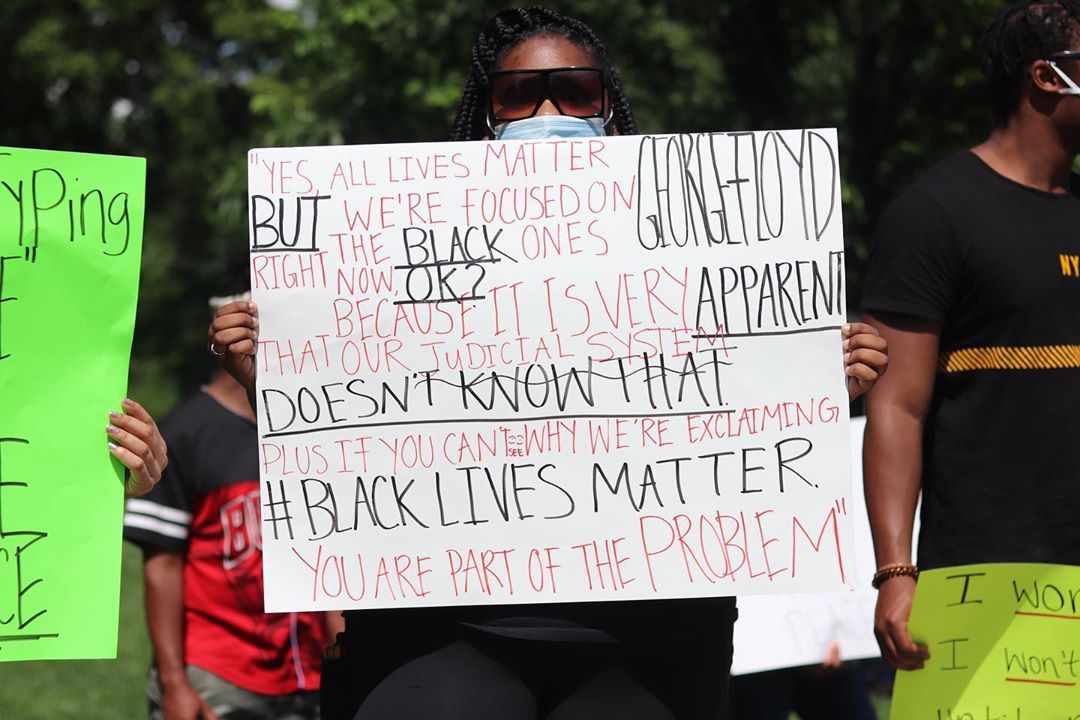 "YES, ALL LIVES MATTER
BUT WE'RE FOCUSED ON
THE BLACK ONES
RIGHT NOW, OK?
BECAUSE IT IS VERY APPARENT
THAT OUR JUDICIAL SYSTEM
DOESN'T KNOW THAT.
PLUS IF YOU CAN'T SEE WHY WE'RE EXCLAIMING
#BLACK LIVES MATTER.
YOU ARE PART OF THE PROBLEM"
GEORGE FLOYD
yPing
NY
I
I won't